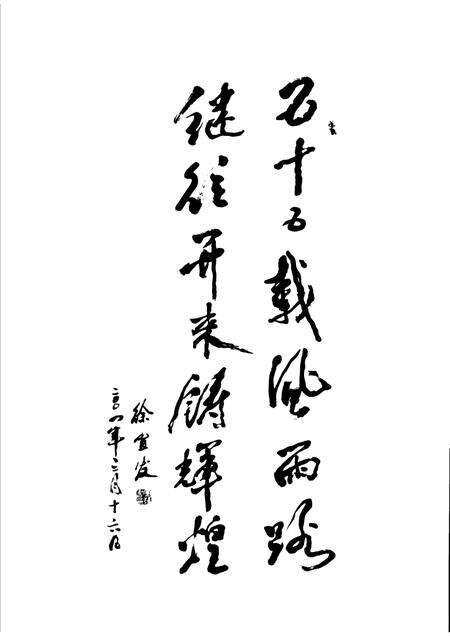 五十五载风雨路
继往开来铸辉煌
徐宜发
二〇一一年三月十六日